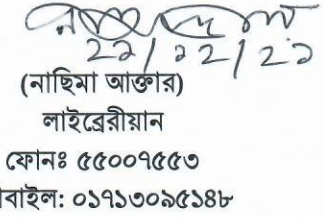 (নাছিমা আক্তার)
লাইব্রেরীয়ান
ফোনঃ ৫৫০০৭৫৫৩
াবাইল: ০১৭১৩০৯৫১৪৮